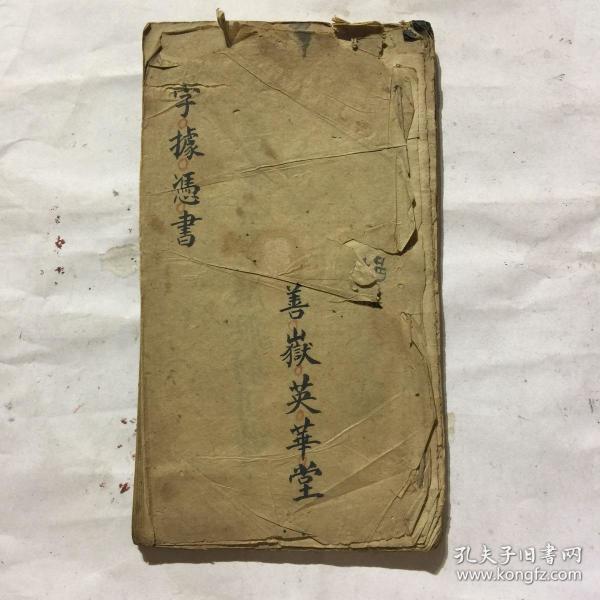 字據憑書
善嶽英華堂
孔夫子旧书网
www.kongfz.com